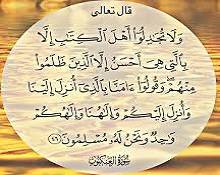 قال تعالى
وَلَا تُجَٰدِلُوٓا۟ أَهْلَ ٱلْكِتَٰبِ إِلَّا
بِٱلَّتِى هِىَ أَحْسَنُ إِلَّا ٱلَّذِينَ ظَلَمُوا۟
مِنْهُمْ ۖ وَقُولُوٓا۟ ءَامَنَّا بِٱلَّذِىٓ أُنزِلَ إِلَيْنَا
وَأُنزِلَ إِلَيْكُمْ وَإِلَٰهُنَا وَإِلَٰهُكُمْ
وَٰحِدٌ وَنَحْنُ لَهُۥ مُسْلِمُونَ ﴿٤٦﴾
سُورَةُ العَنكَبُوت